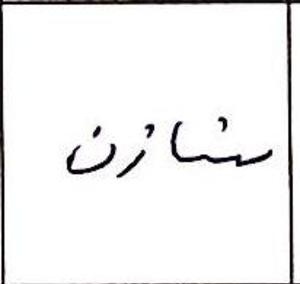 سنازن